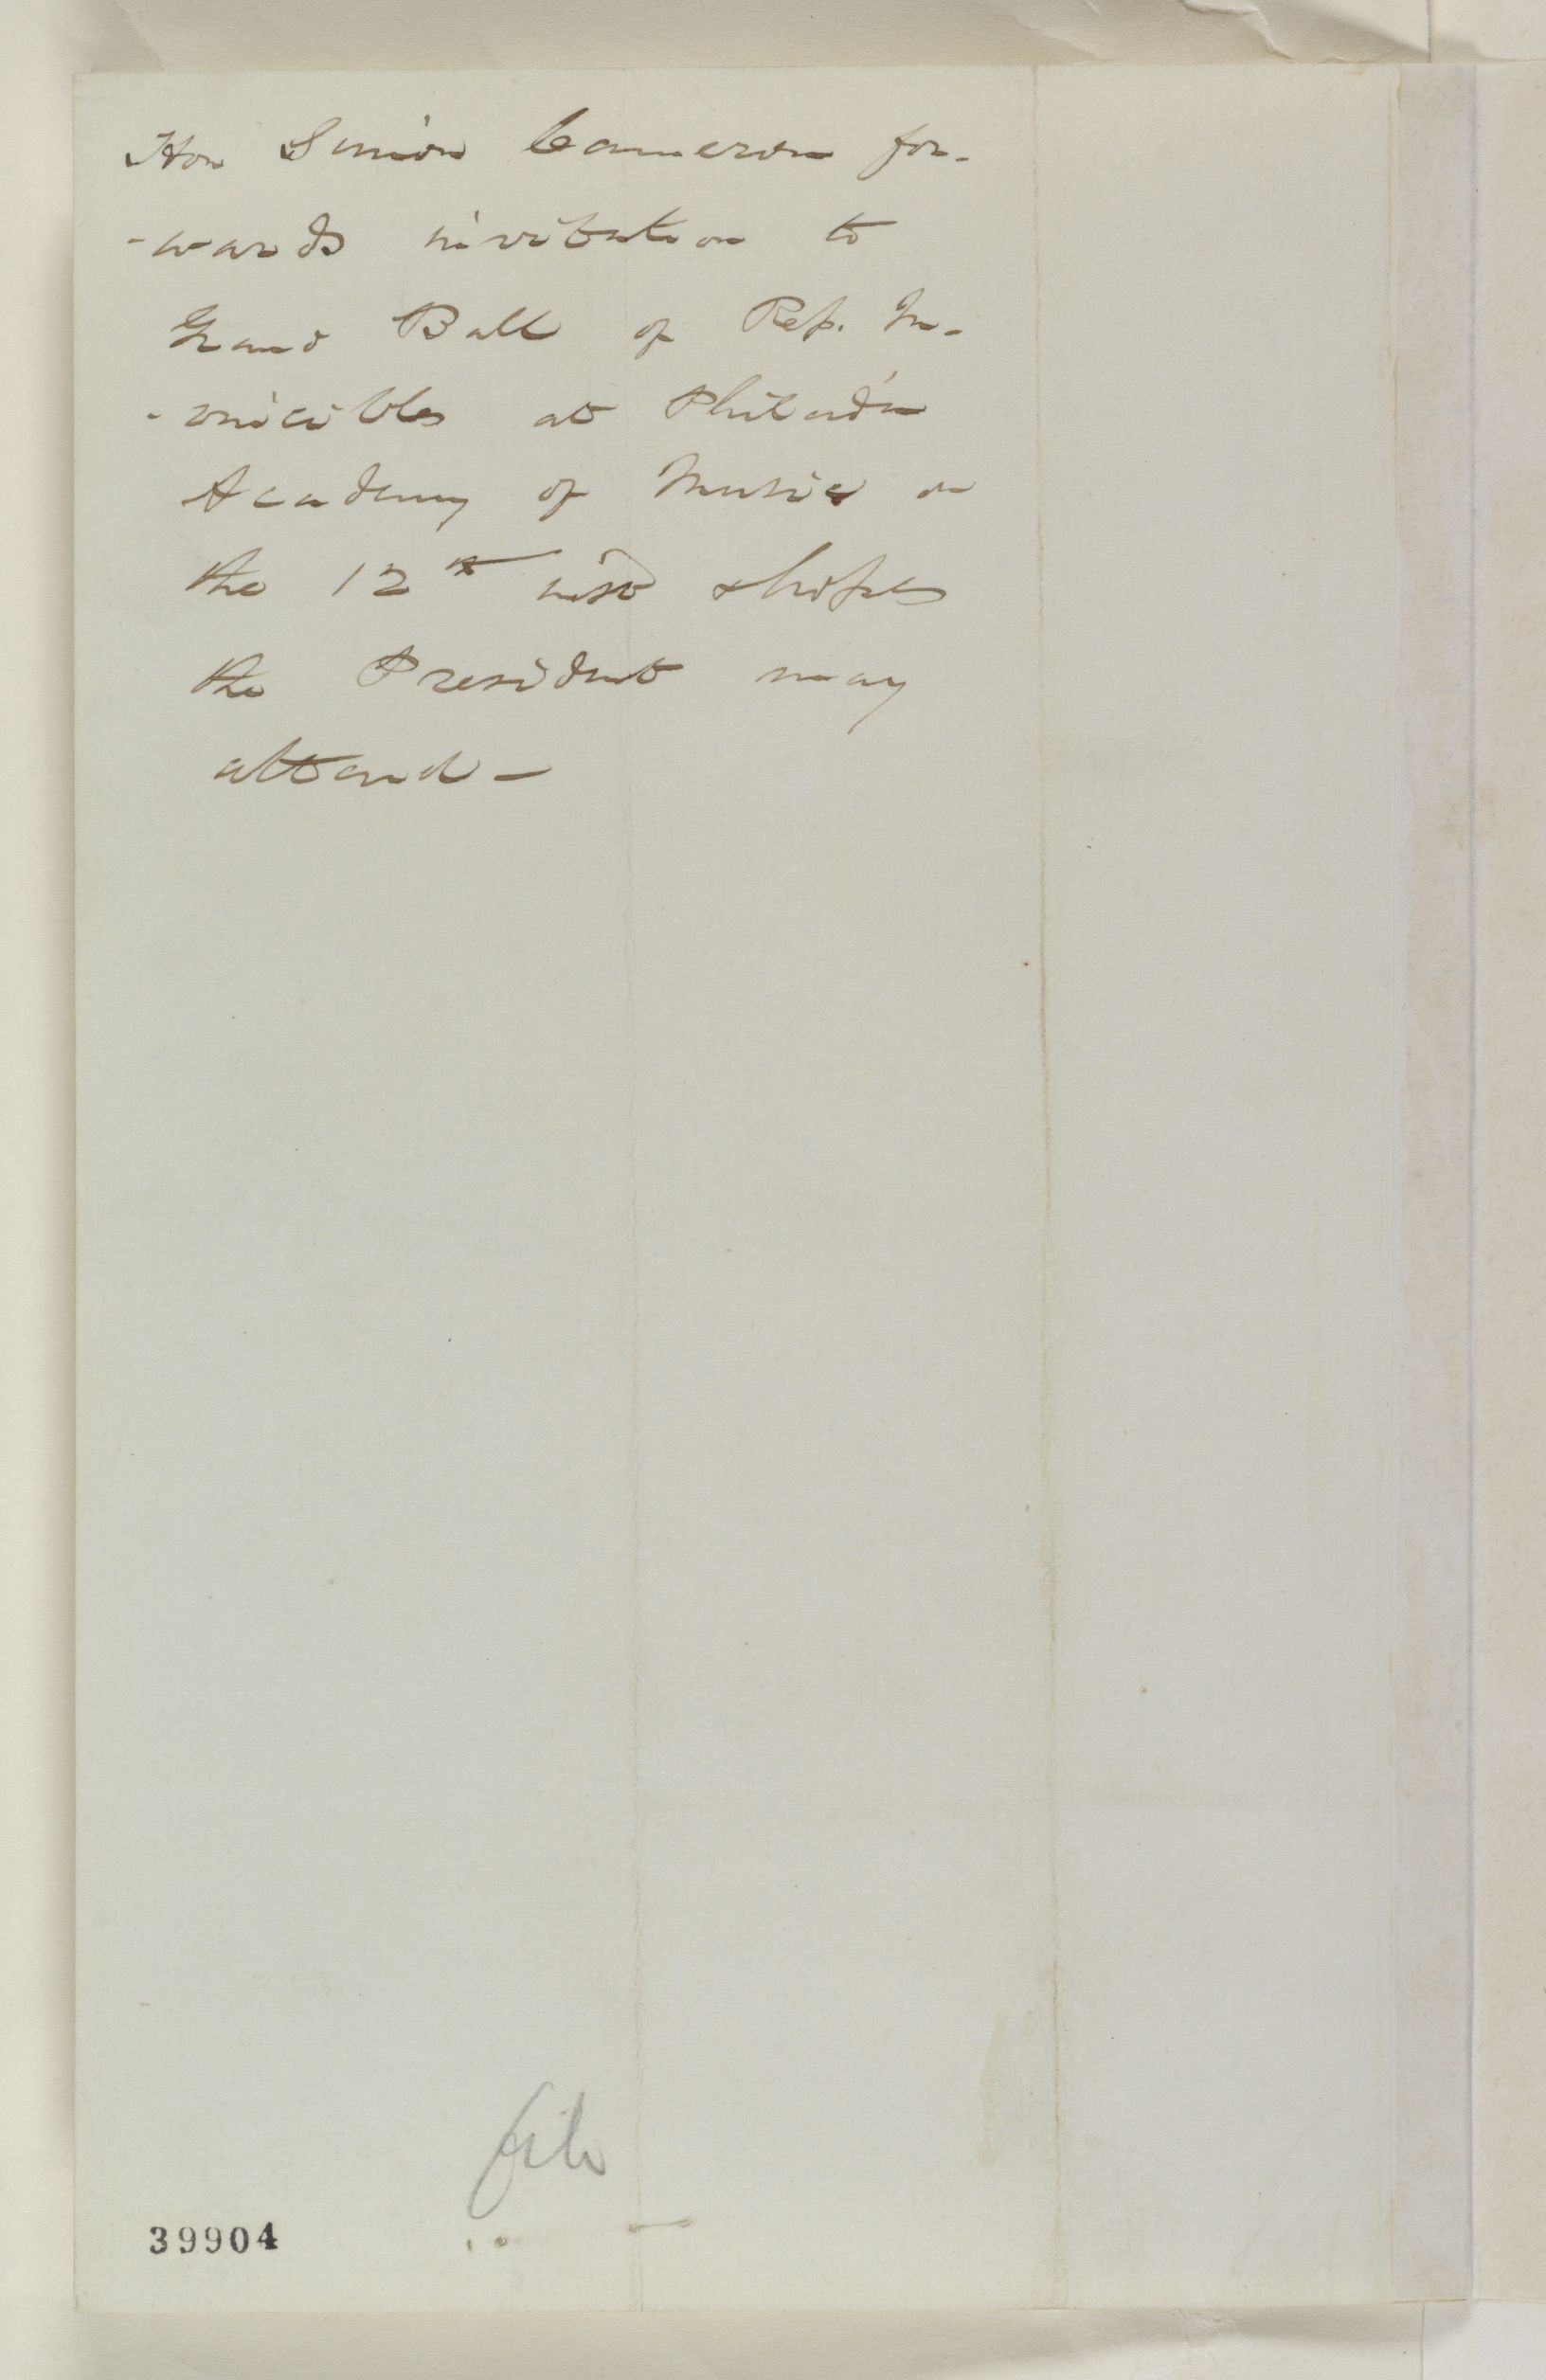 Hon Simon Cameron for-
-wards invitation to
Grand Ball of Rep. In-
-vincibles at Philad'a
Academy of Music on
the 12th inst & hopes
the President may
attend —
file
39904